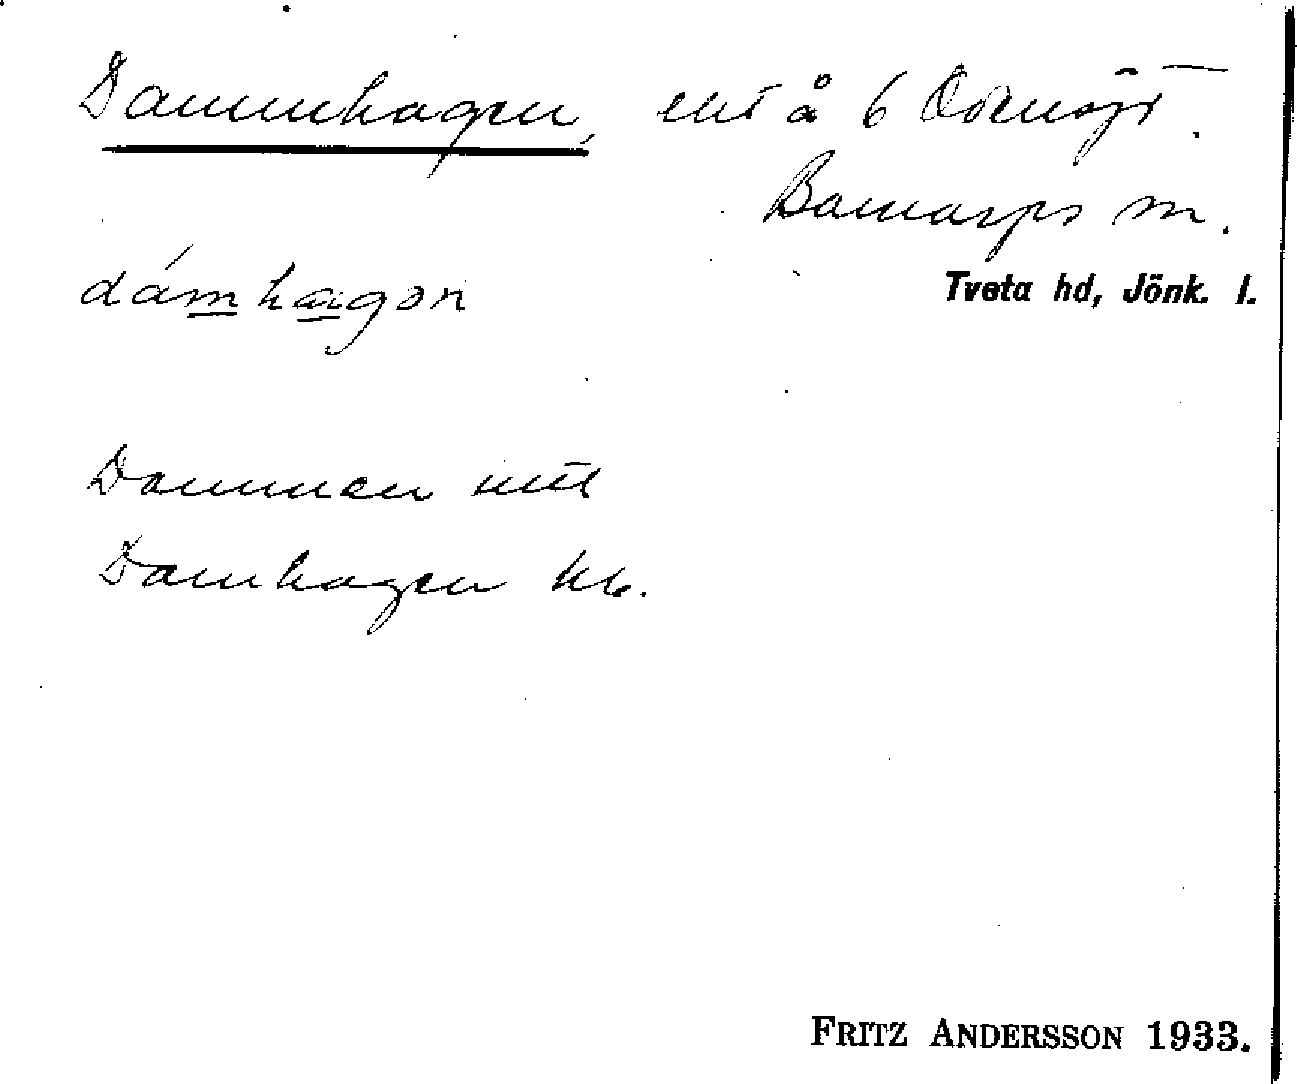 Dammhagen, ent å 6
Barnarps sn.
dámhagən
Tveta hd, Jönk. l.
Dammen
Damhagen hb.
FRITZ ANDERSSON 1933.